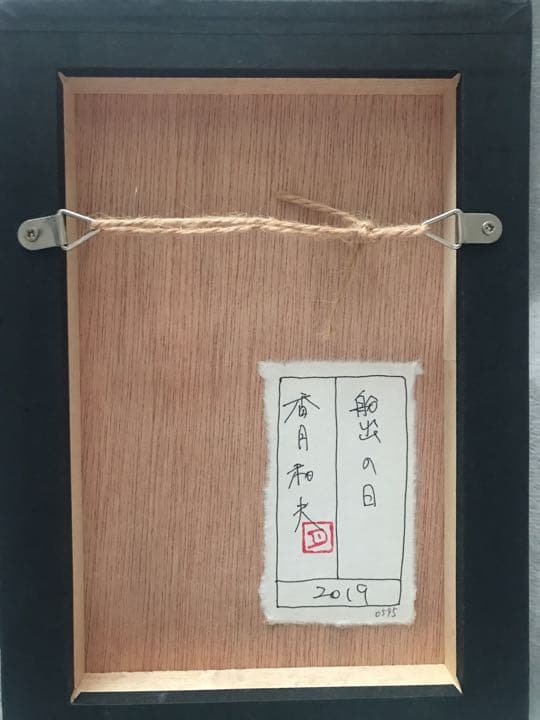 船出の日
香月和夫
2019
0595